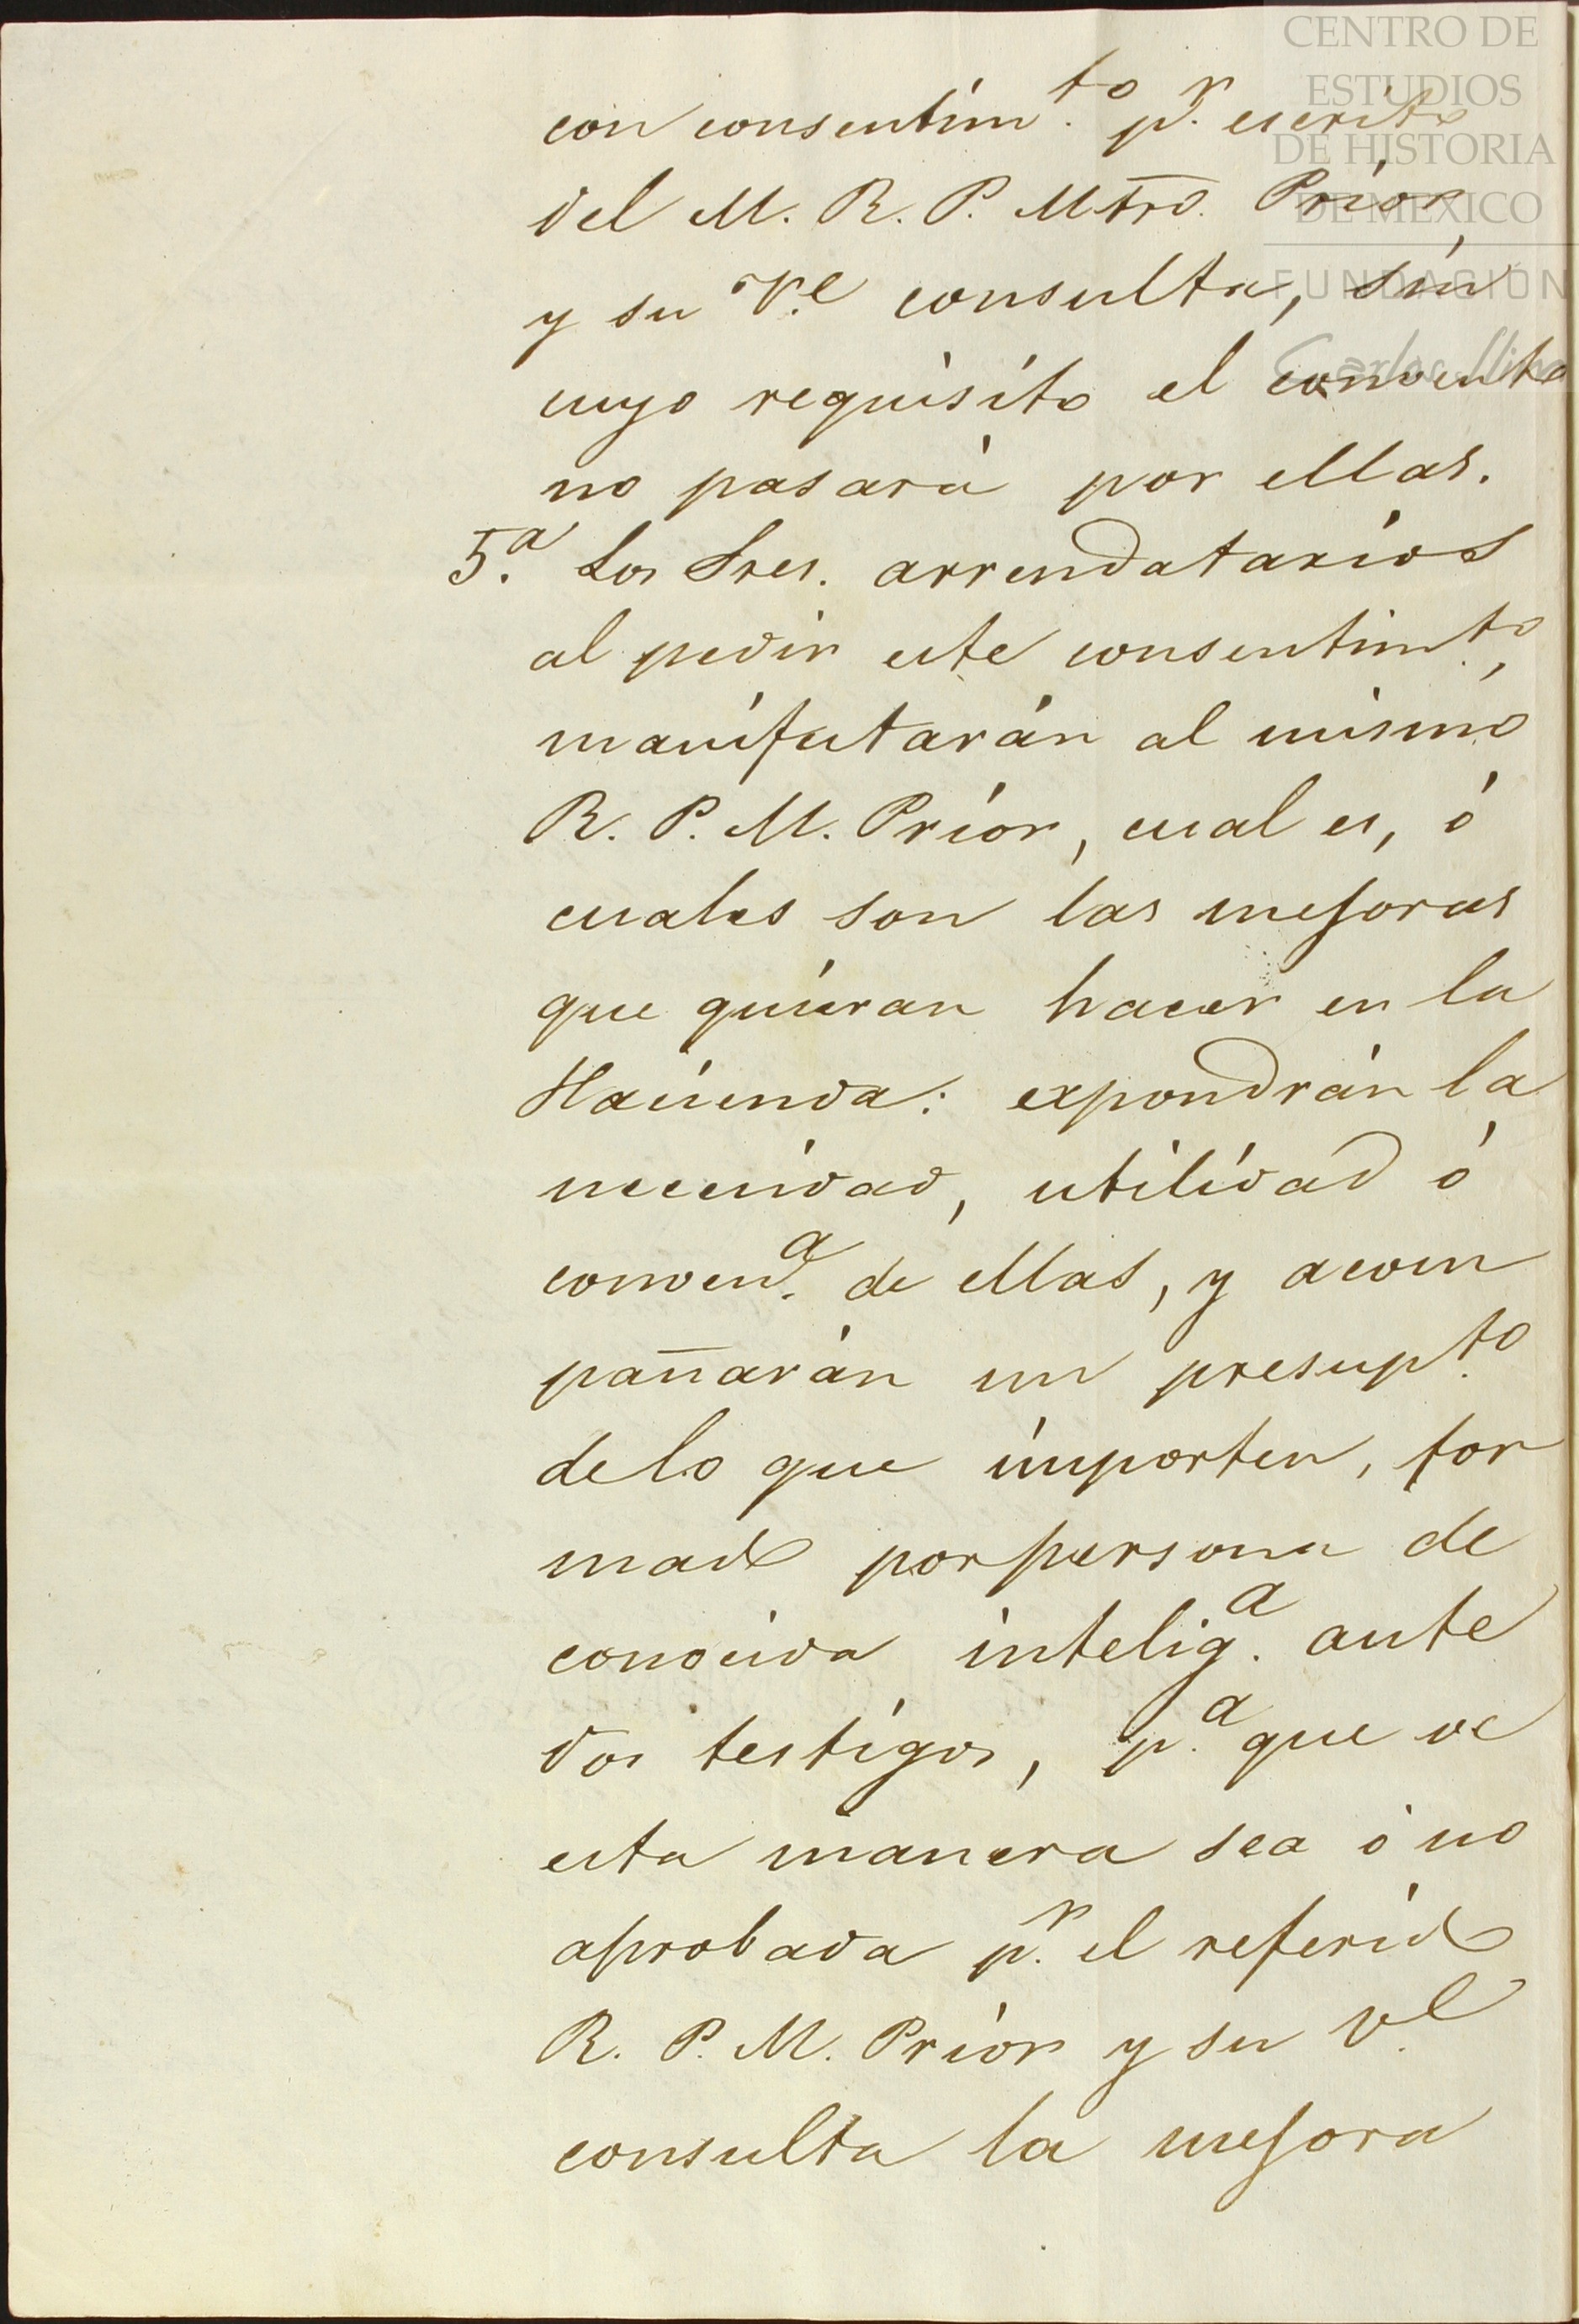 CENTRO DE
ESTUDIOS
DE HISTORIA
DE MEXICO
FUNDACIÓN
Carlos Slim
con consentim.to p.r escrito
del M. R. P. Mtrō. Prior,
y su V.e consulta, sin
cuyo requisito el convento
no pasará por ellas.
5.a Los Sres. arrendatarios
al pedir este consentim.to,
manifestarán al mismo
R. P. M. Prior, cual es, ó
cuales son las mejoras
que quieran hacer en la
Hacienda: expondrán la
necesidad, utilidad ó
convend.a de ellas, y acom
pañarán un presup.to
de lo que importen, for
mado por persona de
conocida intelig.a ante
dos testigos, p.a que de
esta manera sea ó no
aprobada p.r el referido
R. P. M. Prior y su V.e
consulta la mejora